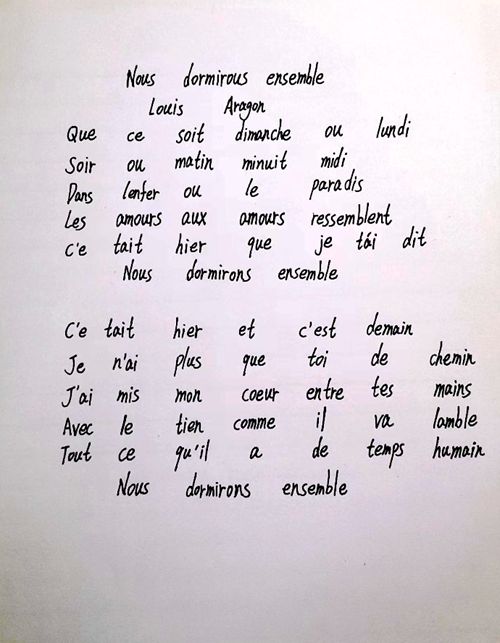 Nous dormirous ensemble
Louis Aragon
Que ce soit dimanche ou lundi
Soir ou matin minuit midi
Dans lenfer ou le paradis
Les amours aux amours ressemblent
c'e tait hier que je tái dit
Nous dormirons ensemble
C'e tait hier et c'est demain
Je n'ai plus que toi de chemin
J'ai mis mon coeur entre tes mains
Avec le tien comme il va lamble
Tout ce qu'il a de temps humain
Nous dormirons ensemble